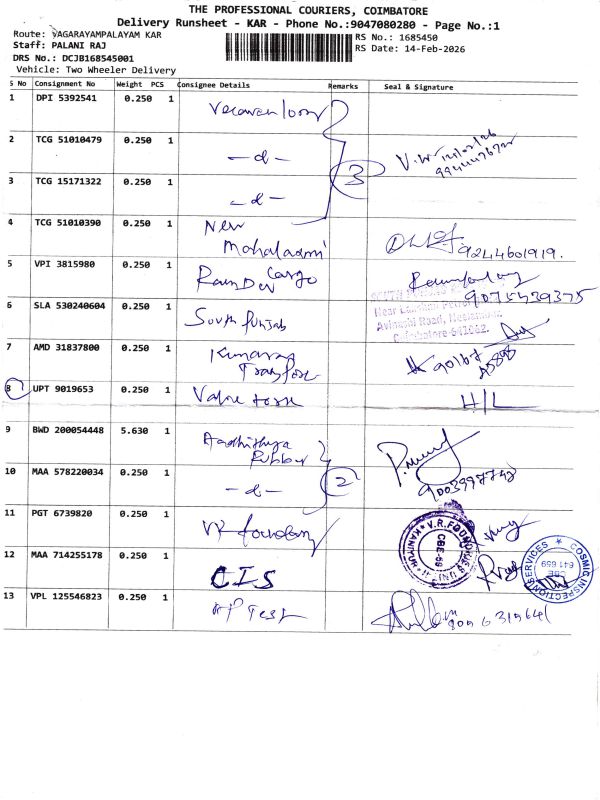 THE PROFESSIONAL COURIERS, COIMBATORE
Delivery Runsheet - KAR - Phone No.:9047080280 - Page No.:1
Route: VAGARAYAMPALAYAM KAR
RS No.: 1685450
Staff: PALANI RAJ
RS Date: 14-Feb-2026
DRS No.: DCJB168545001
Vehicle: Two Wheeler Delivery
S No Consignment No Weight PCS Consignee Details Remarks Seal & Signature
1 DPI 5392541 0.250 1
2 TCG 51010479 0.250 1 -d-
3 TCG 15171322 0.250 1 -d-
3
4 TCG 51010390 0.250 1 New
Mahalaxmi
9244601919.
5 VPI 3815980 0.250 1 Cargo
9075439375
6 SLA 530240604 0.250 1 South Punjab
Avinashi Road,
Coimbatore-641062.
7 AMD 31837800 0.250 1 Kumaran
8 UPT 9019653 0.250 1 H/L
9 BWD 200054448 5.630 1 Aadhithya
Rubber
10 MAA 578220034 0.250 1 -d- 2
9003997742
11 PGT 6739820 0.250 1 VR foundry
V.R.FOUNDRIES
CBE-59
12 MAA 714255178 0.250 1 CIS
COSMIC INSPECTION SERVICES
CBE
641 659
13 VPL 125546823 0.250 1 Test